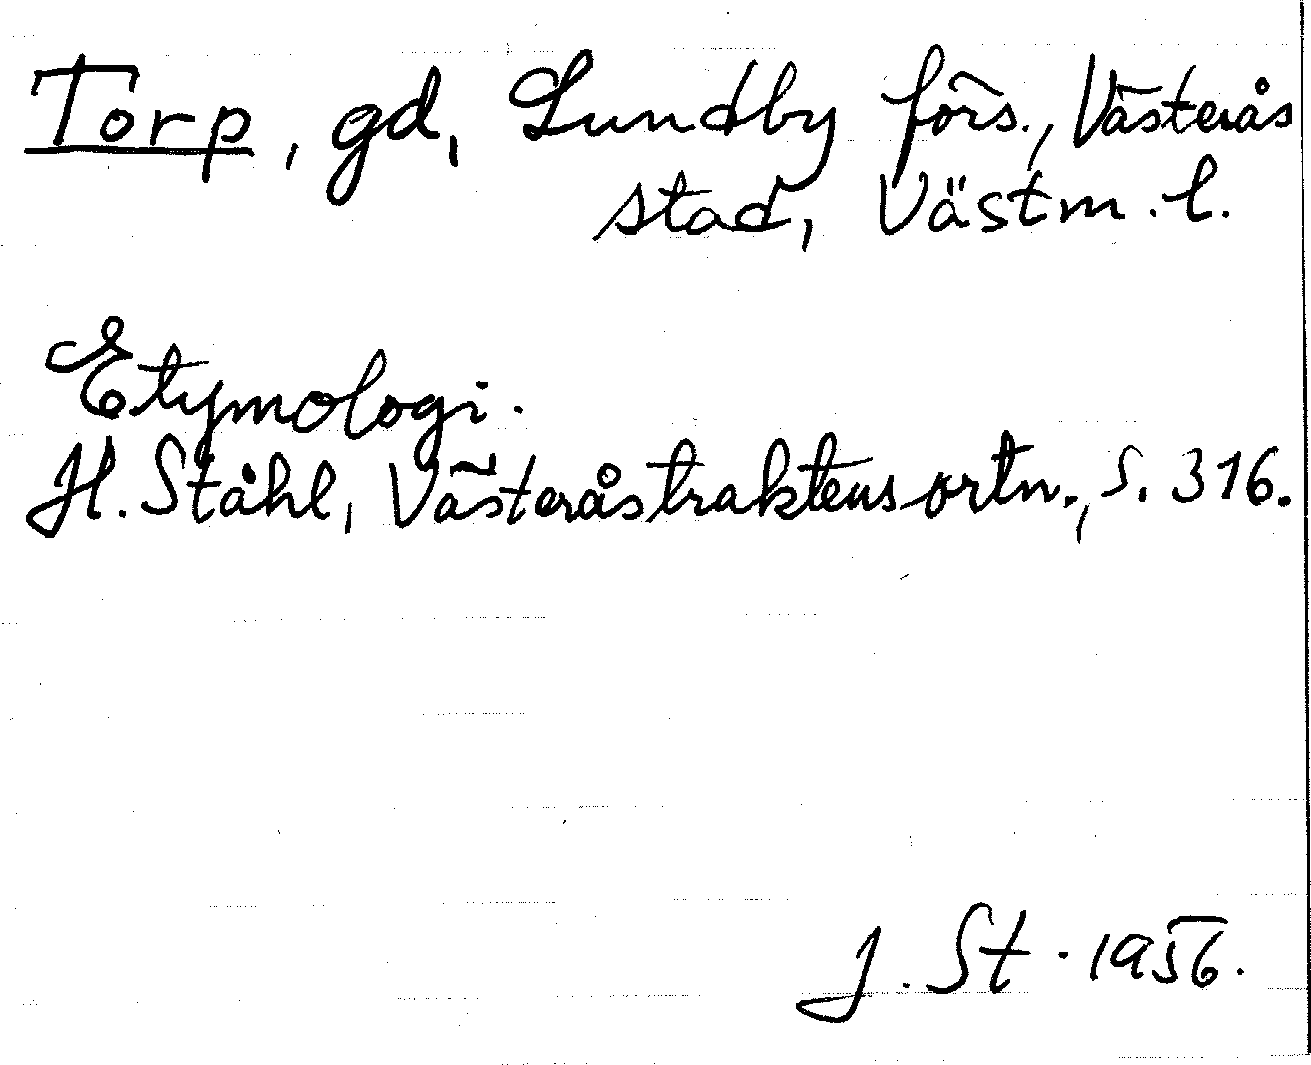 Torp, gd, Lundby förs., Västerås
stad, Västm. l.
Etymologi.
H. Ståhl, Västeråstraktens ortn., S. 316.
J. St. 1956.